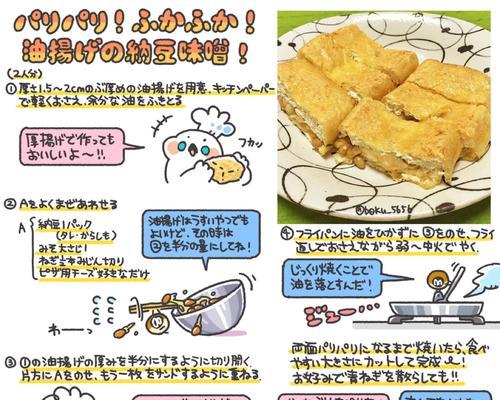 パリパリ！ふかふか！
油揚げの納豆味噌！
(2人分)
①厚さ1.5〜2cmのぶ厚めの油揚げを用意、キッチンペーパー
で軽くおさえ、余分な油をふきとる
厚揚げで作っても
おいしいよ〜!!
フカッ
②Aをよくまぜあわせる
A
納豆1パック
(タレ・からしも)
みそ大さじ1
ねぎ1/2本みじん切り
ピザ用チーズ好きなだけ
油揚げはうすいやつでも
よいけど、その時は
②を半分の量にしてね!
わーっ
③①の油揚げの厚みを半分にするように切り開く、
片方にAをのせ、もう一枚をサンドするように重ねる
@boku_5656
④フライパンに油をひかずに③をのせ、フライ
返しでおさえながら弱〜中火でやく
じっくり焼くことで
油を落とすんだ!
ジュー…
両面パリパリになるまで焼いたら、食べ
やすい大きさにカットして完成!
お好みで青ねぎを散らしても!!